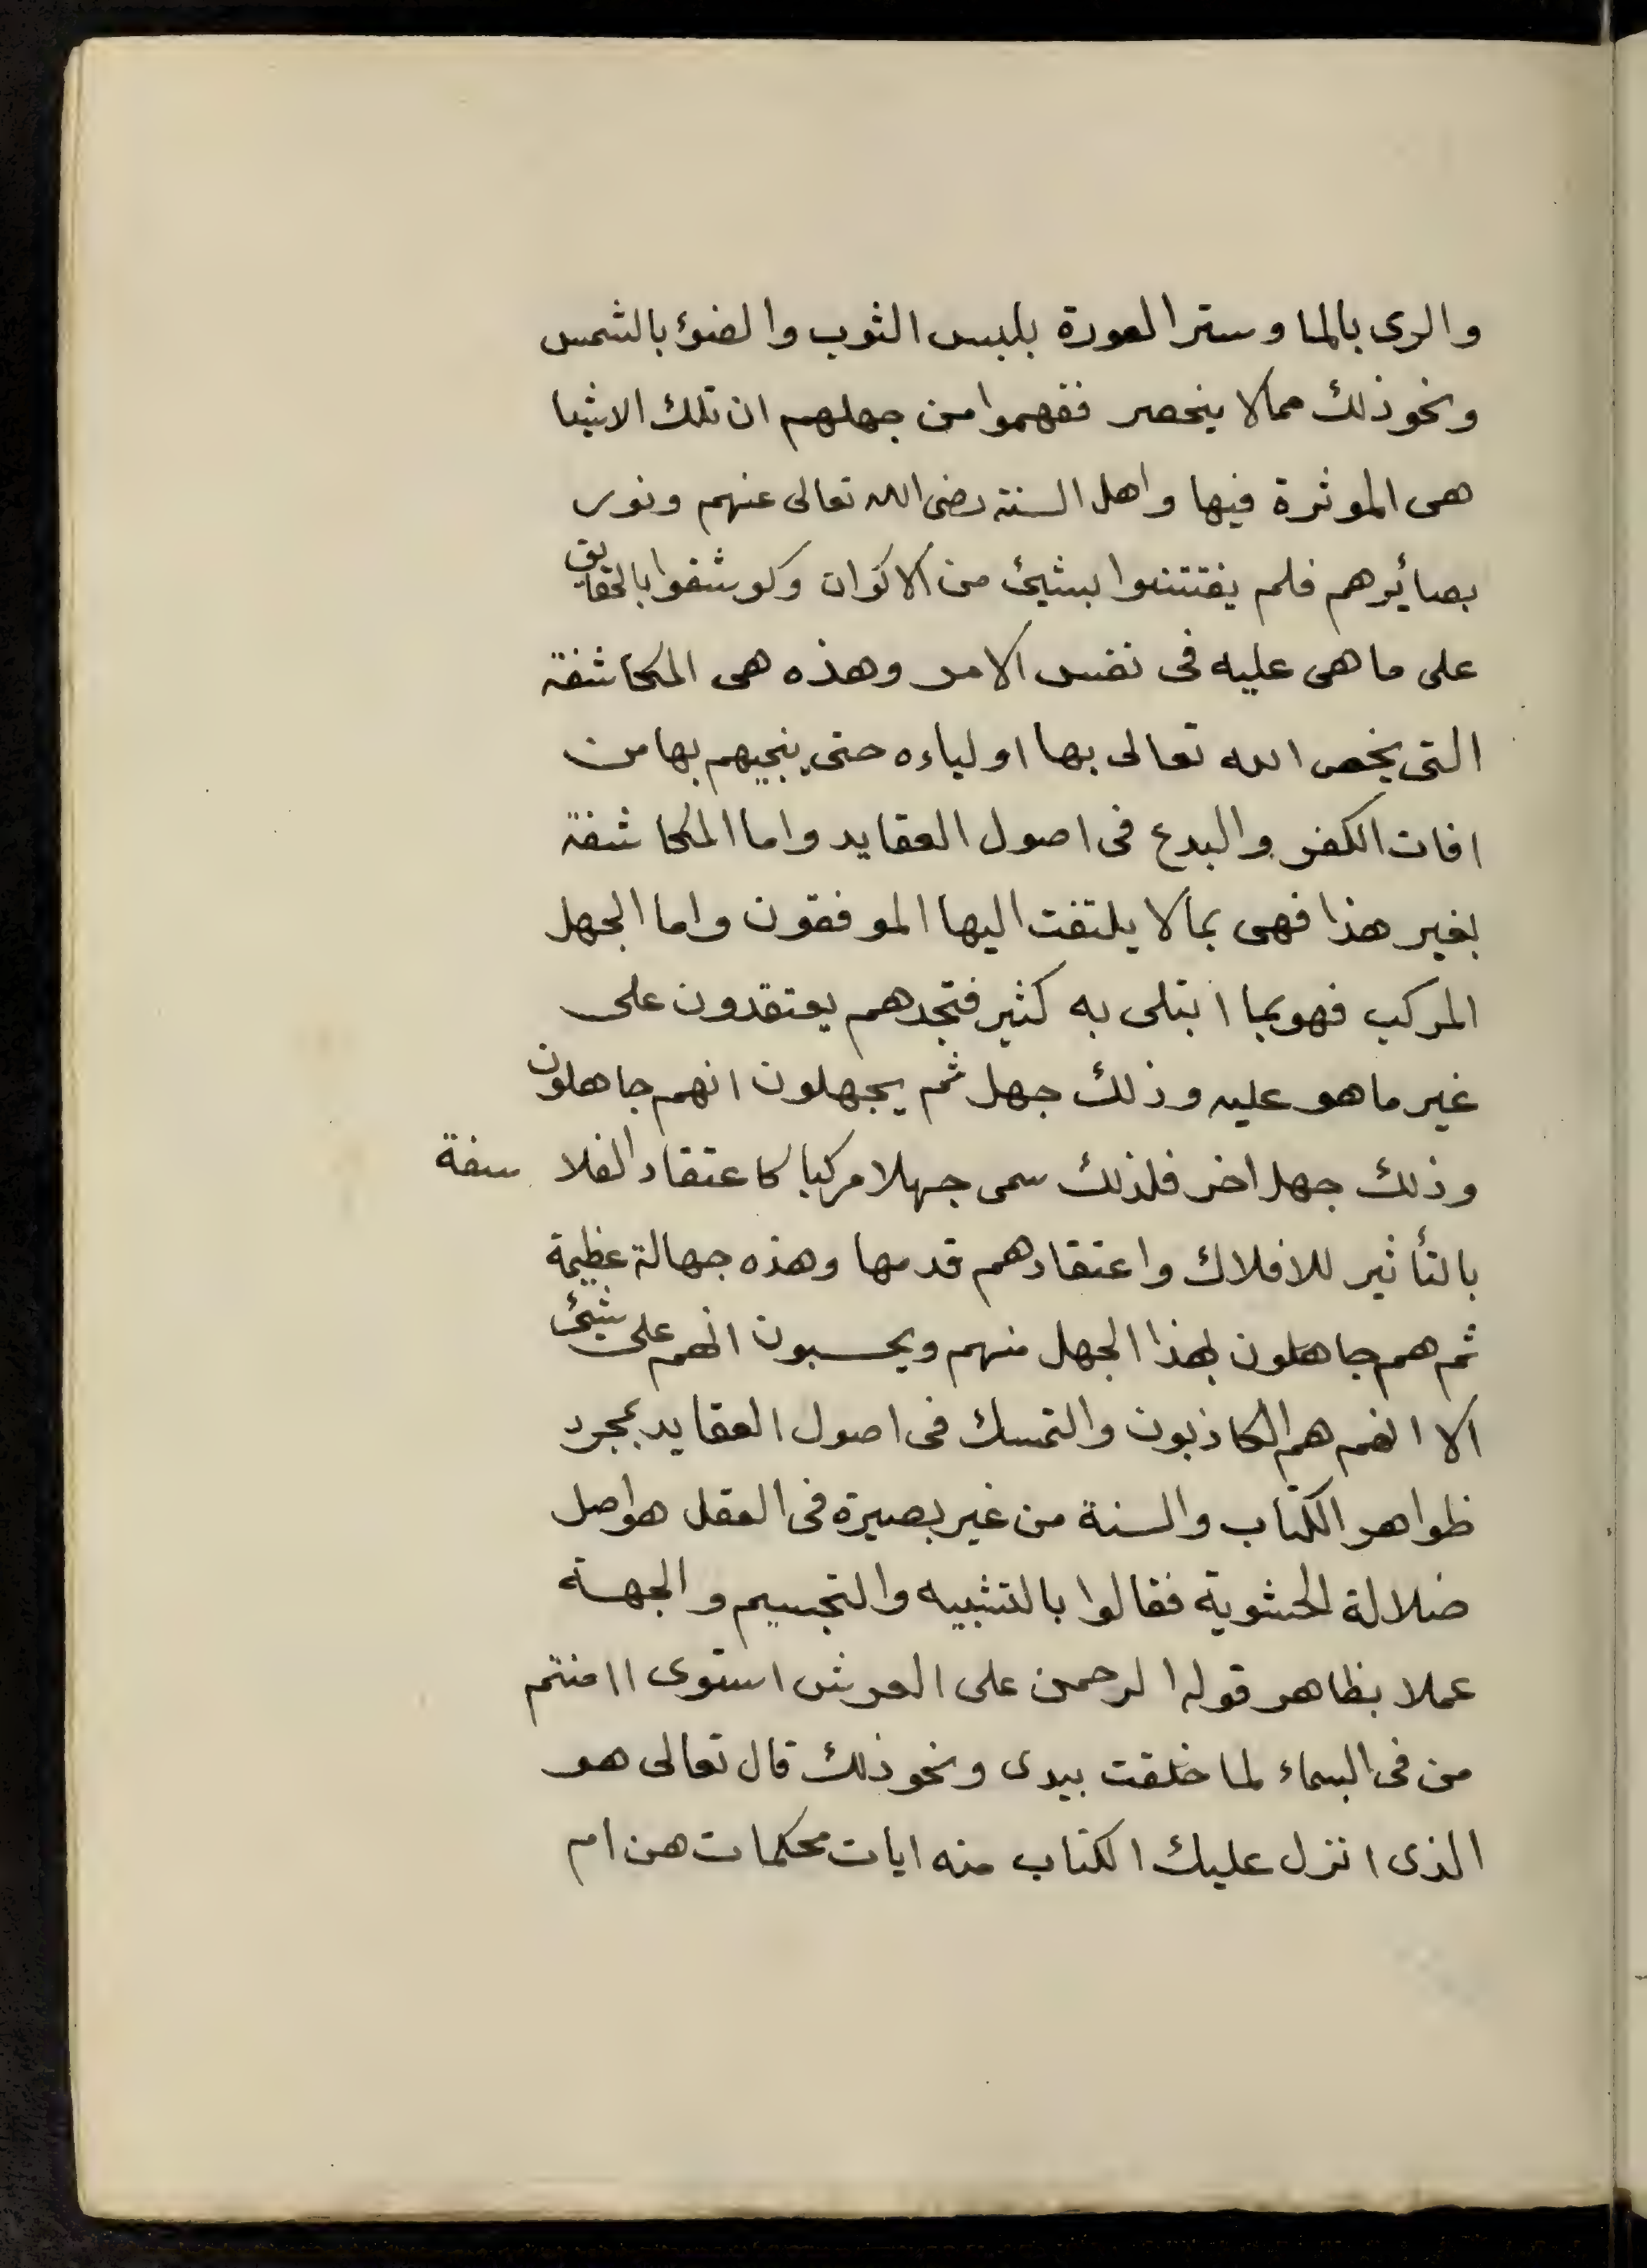 والرى بالما وستر العورة بلبس الثوب والضوٴ بالشمس
ونحو ذلك مما لا ينحصر ففهموا من جهلهم ان تلك الاشيا
هى الموثرة فيها واهل السنة رضى الله تعالى عنهم ونور
بصائرهم فلم يفتتنوا بشيئ من الاكوان وكوشفوا بالحقايق
على ما هى عليه فى نفس الامر وهذه هى المكاشفة
التى يخص الله تعالى بها اولياءه حتى ينجيهم بها من
افات الكفر والبدع فى اصول العقايد واما المكاشفة
بغير هذا فهى مما لا يلتفت اليها الموفقون واما الجهل
المركب فهو مما ابتلى به كثير فتجدهم يعتقدون على
غير ما هو عليه وذلك جهل ثم يجهلون انهم جاهلون
وذلك جهل اخر فلذلك سمى جهلا مركبا كاعتقاد الفلا سفة
بالتأثير للافلاك واعتقادهم قدمها وهذه جهالة عظيمة
ثم هم جاهلون بهذا الجهل منهم ويحسبون انهم على شيئ
الا انهم هم الكاذبون والتمسك فى اصول العقايد بمجرد
ظواهر الكتاب والسنة من غير بصيرة فى العقل هو اصل
ضلالة الحشوية فقالوا بالتشبيه والتجسيم والجهة
عملا بظاهر قوله الرحمن على العرش استوى اامنتم
من فى السماء لما خلقت بيدى ونحو ذلك قال تعالى هو
الذى انزل عليك الكتاب منه ايات محكمات هن ام